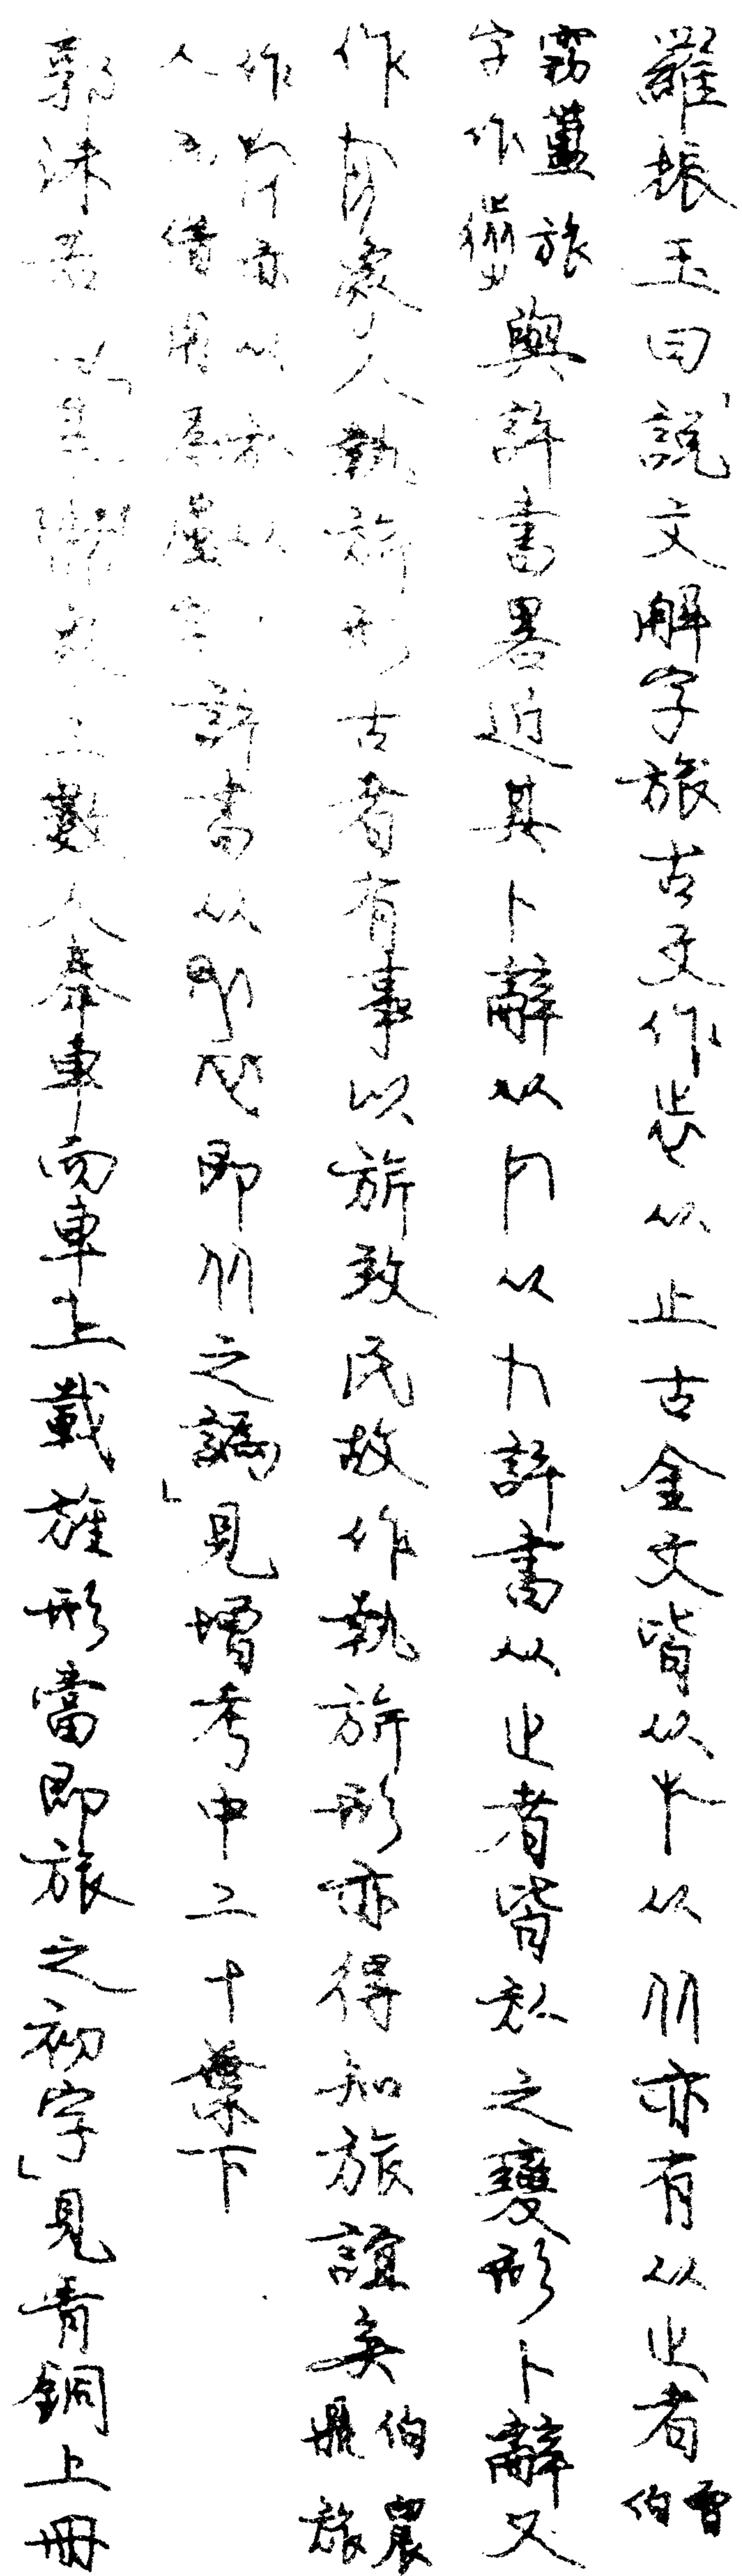 羅振玉曰「說文解字旅古文作㫃从止古金文皆从㫃从从亦有从止者曾伯
霥簠旅字作與許書畧近其卜辭从从許書从止者皆㫃之變形卜辭又
作象人執旂形古者有事以旂致民故作執旂形亦得知旅誼矣伯晨鼎旅
作亦从㫃从人而借用為盧字許書从即从之譌」見增考中二十葉下
郭沫若以「上數人奉車而車上載旌形當即旅之初字」見青銅上冊